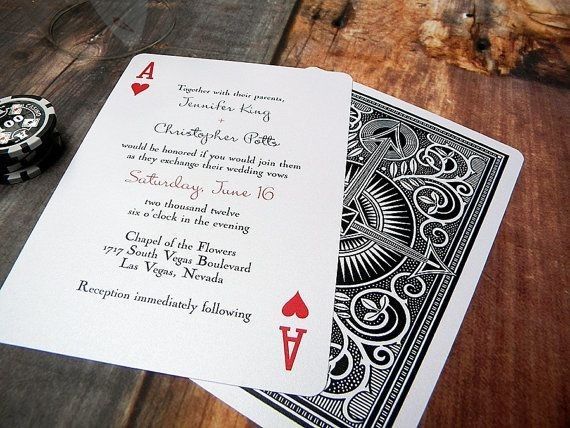 A
Together with their parents,
Jennifer King
+
Christopher Potts
would be honored if you would join them
as they exchange their wedding vows
Saturday, June 16
two thousand twelve
six o'clock in the evening
Chapel of the Flowers
1717 South Vegas Boulevard
Las Vegas, Nevada
Reception immediately following
A